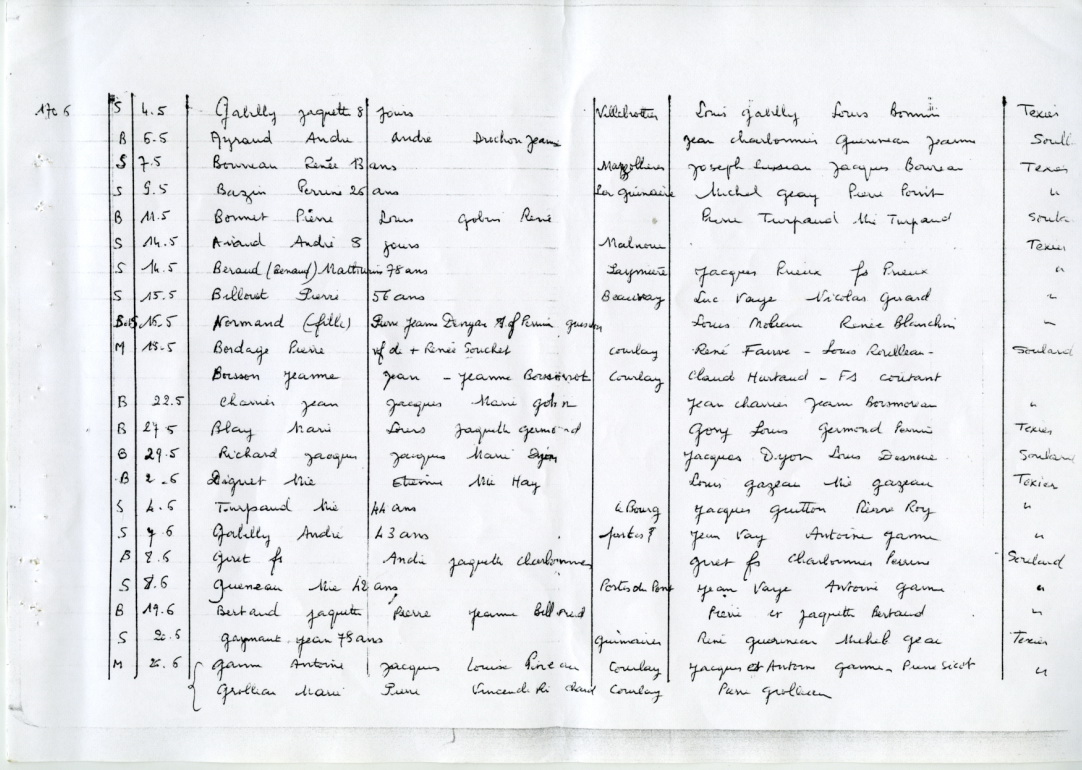 S 4.5 Gabilly Jaquette 8 jours Louis Gabilly Louis Bonnin Texier
B 6.5 Ayraud Andre Andre Duchon Jeanne Jean Charbonnier Jeanne
S 7.5 Renée 13 ans Joseph Jacques Texier
S 9.5 Bazin Perrine 26 ans La Guimaire Michel Geay Pierre "
B 11.5 Bonnet Pierre Louis Gobin René Pierre Turpaud Mie Turpaud
S 14.5 André 8 jours Malnoue Texier
S 14.5 Beraud (Renaud) Mathurin 78 ans Jacques Prieux fs Prieux "
S 15.5 Billoret Pierre 56 ans Beauvay Luc Vaye Nicolas "
B 15.5 Normand (fille) Pierre Jeanne Louis Renée Blanchin "
M 18.5 Bordage Pierre vf de + Renée Souchet Courlay René Faure - Louis Souland
Boisson Jeanne Jean - Jeanne Courlay Claud Hurtaud - Fs Coutant
B 22.5 Charrier Jean Jacques Marie Gobin Jean Charrier Jeanne Boismoreau "
B 27.5 Blay Marie Louis Jaquette Germond Gory Louis Germond Perrine Texier
B 29.5 Richard Jacques Jacques Marie Dyon Jacques Dyon Louis Souland
B 2.6 Diguet Mie Etienne Mie Hay Louis Gazeau Mie Gazeau Texier
S 4.6 Turpaud Mie 44 ans Le Bourg Jacques Guitton Pierre Roy "
S 7.6 Gabilly André 43 ans portes? Jean Vay Antoine Garnne "
B 8.6 Giret fs André Jaquette Charbonnier Giret fs Charbonnier Perrine Souland
S 8.6 Gueneau Mie 42 ans Portes du Pont Jean Vaye Antoine Garnne "
B 19.6 Bertaud Jaquette Pierre Jeanne Pierre et Jaquette Bertaud "
S Jean 78 ans Guimaires René Michel Geai Texier
M Garnne Antoine Jacques Louise Courlay Jacques et Antoine Garnne - Pierre Sicot "
Grolleau Marie Pierre Courlay Pierre Grolleau